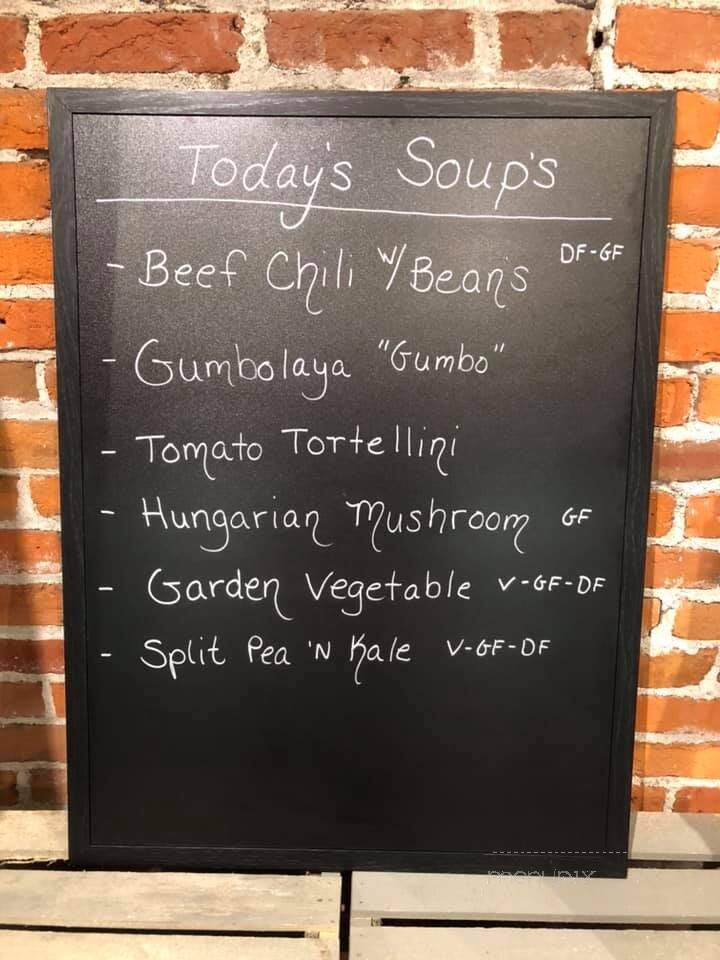 Today's Soup's
- Beef Chili w/ Bean's DF-GF
- Gumbolaya "Gumbo"
- Tomato Tortellini
- Hungarian Mushroom GF
- Garden Vegetable V-GF-DF
- Split Pea 'N Kale V-GF-DF
menupix